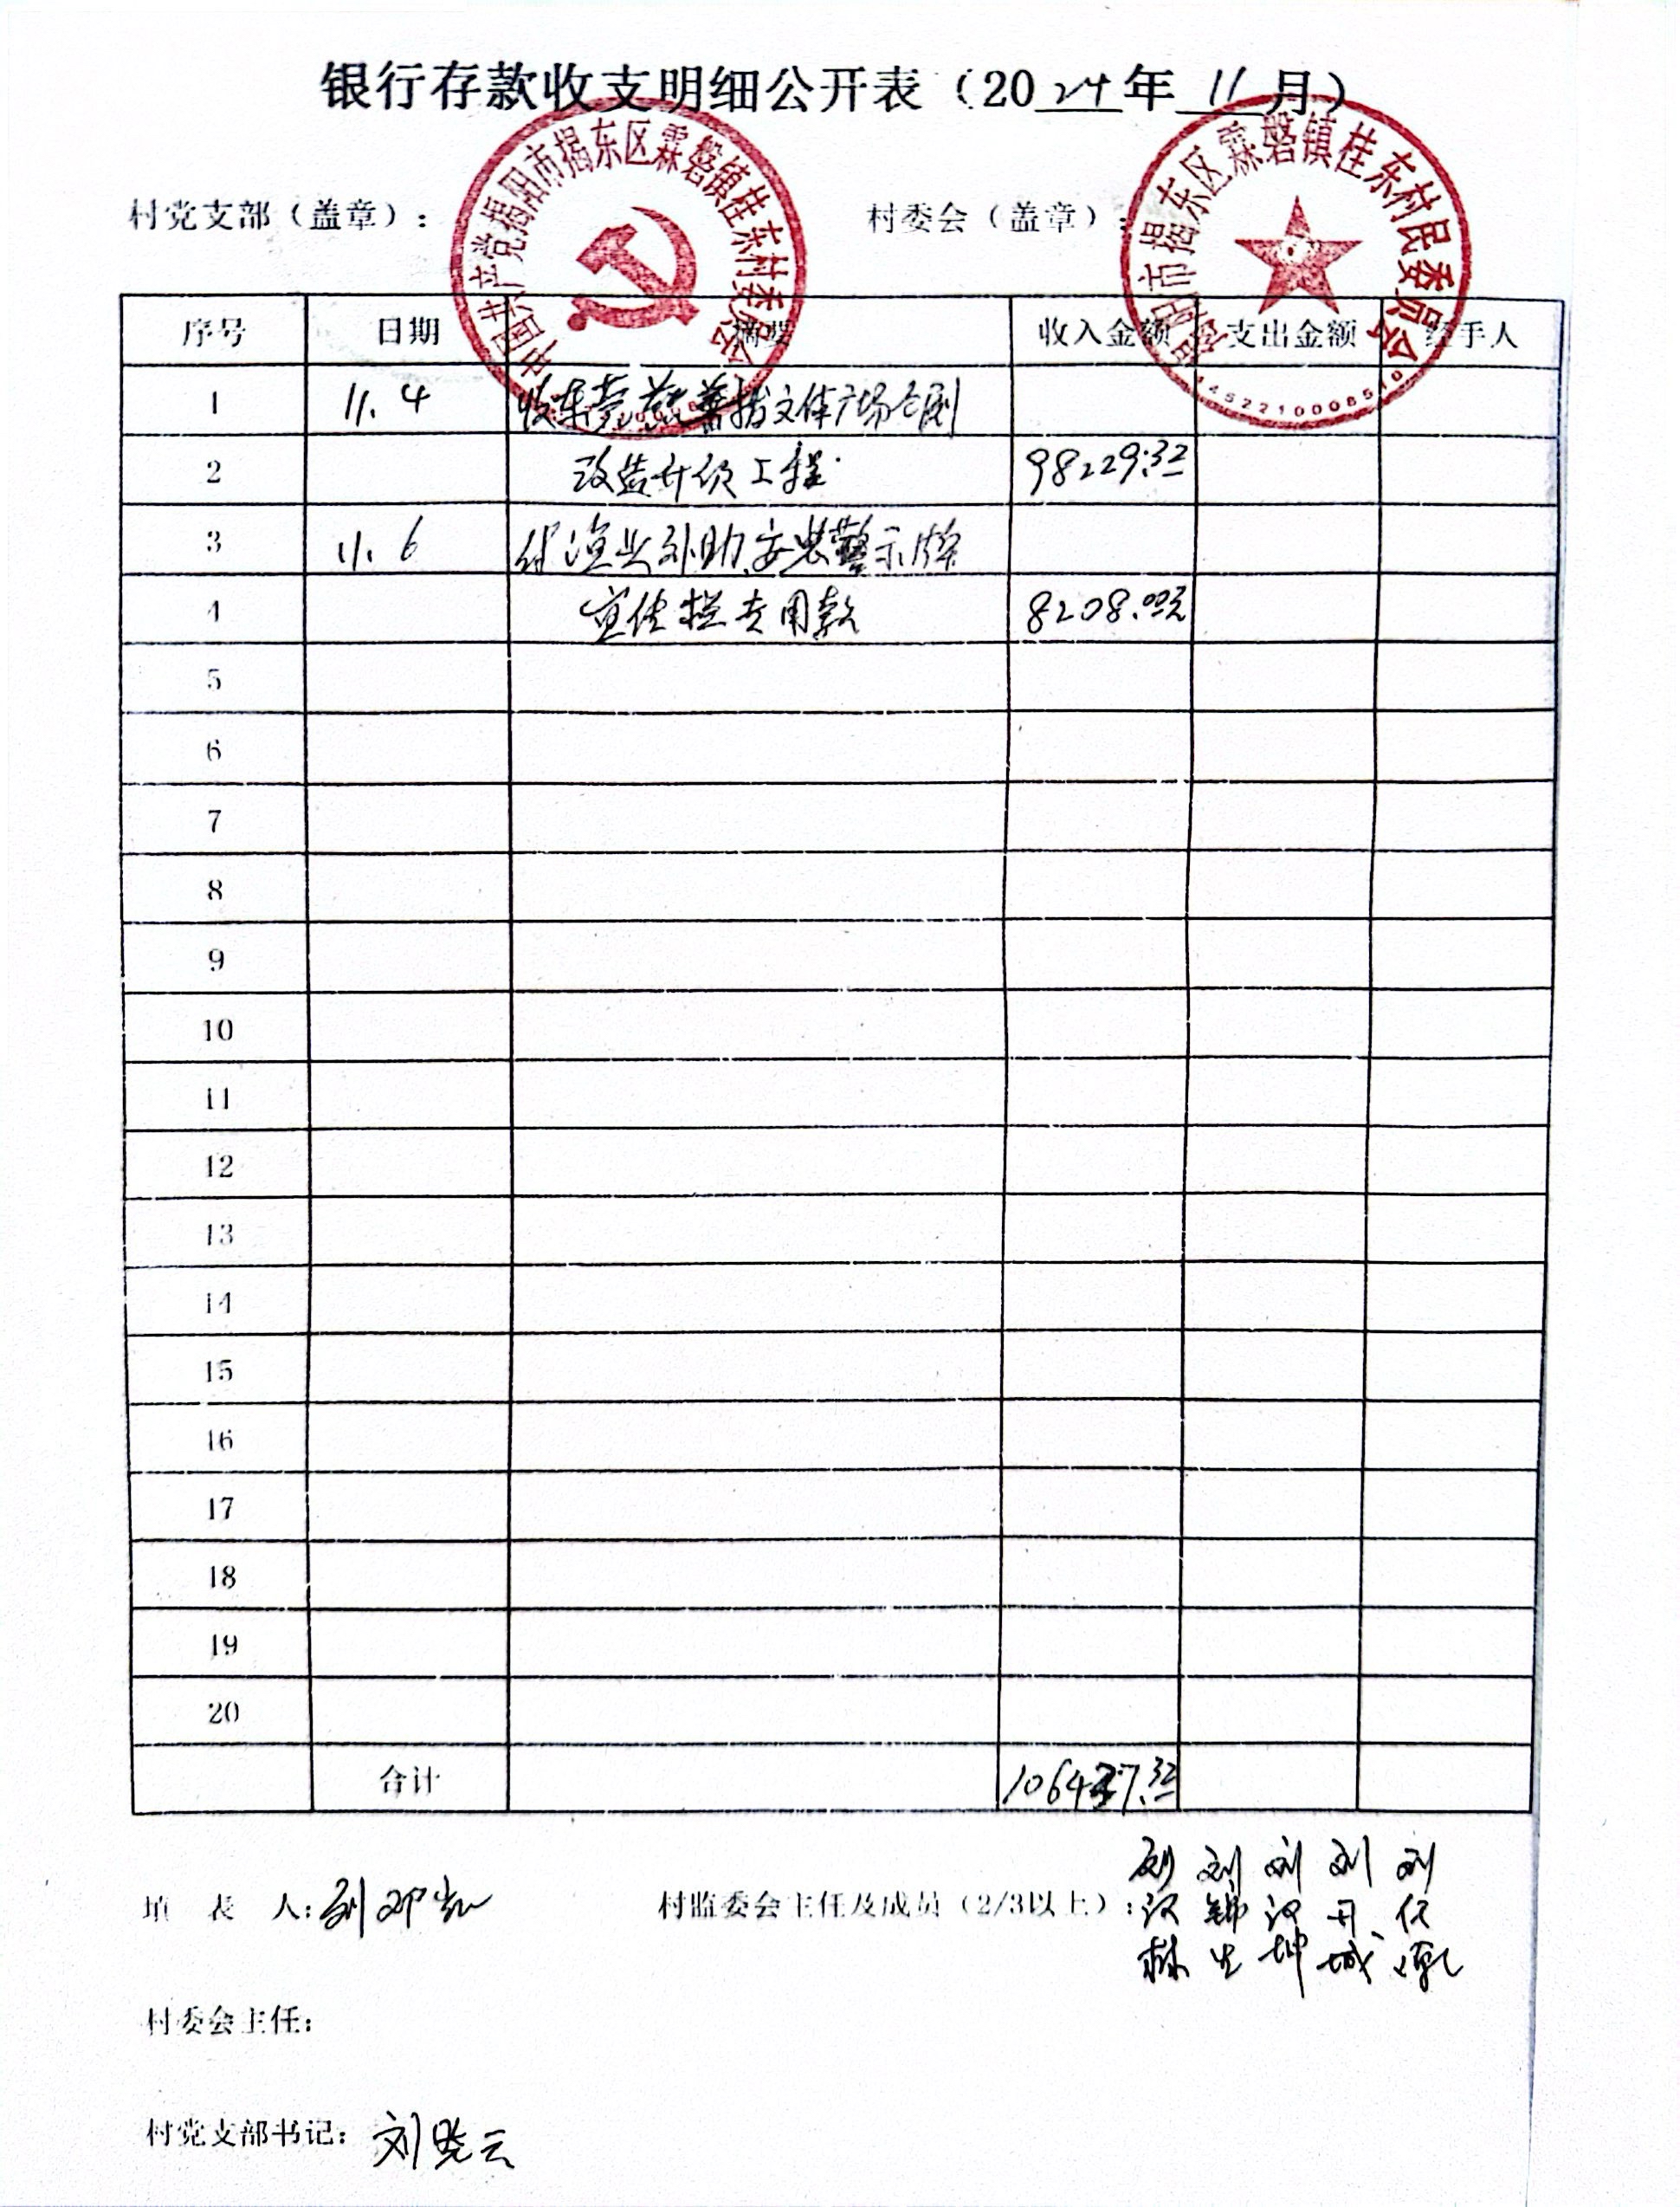 银行存款收支明细公开表（2024年11月）
村党支部（盖章）： 村委会（盖章）：
中国共产党揭阳市揭东区霖磐镇桂东村委员会
揭阳市揭东区霖磐镇桂东村民委员会
4452210008510
序号 日期 摘要 收入金额 支出金额 经手人
1 11.4 收东莞慈善拨文体广场
2 改造升级工程 98229.32
3 11.6 渔业补助安装警示牌
4 宣传栏专用款 8208.00元
5
6
7
8
9
10
11
12
13
14
15
16
17
18
19
20
合计 106437.32
填表人：刘邓
村监委会主任及成员（2/3以上）：刘汉林 刘锦生 刘汉坤 刘丹城 刘
村委会主任：
村党支部书记：刘晓云